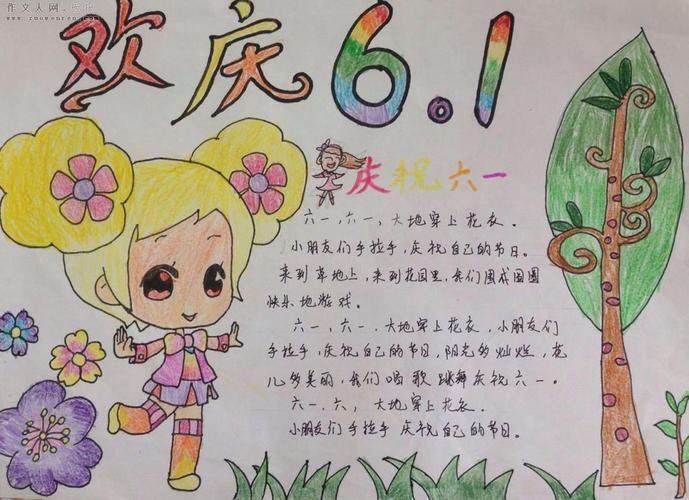 作文人网
www.zuowenren.com
欢庆6.1
庆祝六一
六一,六一,大地穿上花衣。
小朋友们手拉手,庆祝自己的节日。
来到草地上,来到花园里,我们围成圆圈
快乐地游戏。
六一,六一.大地穿上花衣,小朋友们
手拉手,庆祝自己的节日,阳光多灿烂,花
儿多美丽,我们唱歌跳舞庆祝六一。
六一.六,大地穿上花衣.
小朋友们手拉手庆祝自己的节日。